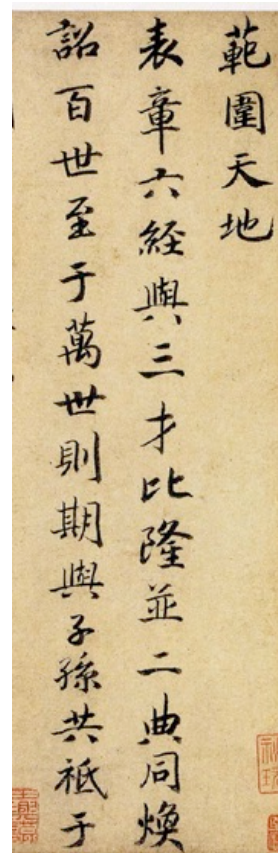 範圍天地
表章六経與三才比隆並二典同煥
詔百世至于萬世則期與子孫共祗于